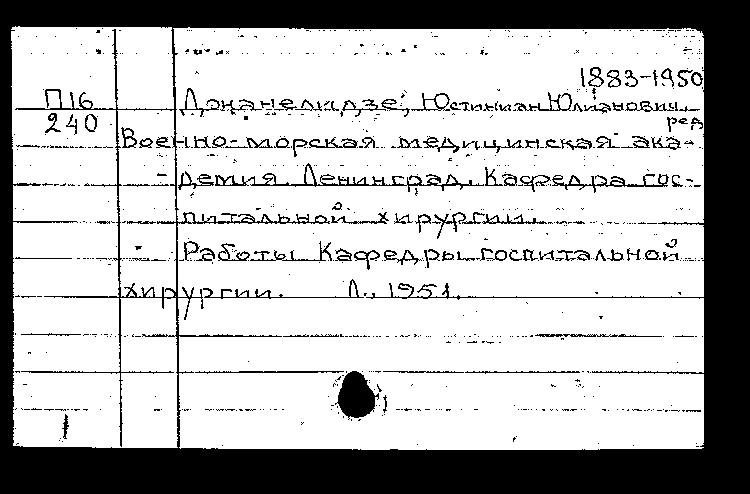 1883-1950
П16 Джанелидзе, Юстиниан Юлианович,
240 ред
Военно-морская медицинская ака-
- демия. Ленинград. Кафедра гос-
питальной хирургии.
- Работы Кафедры госпитальной
хирургии. Л., 1951.